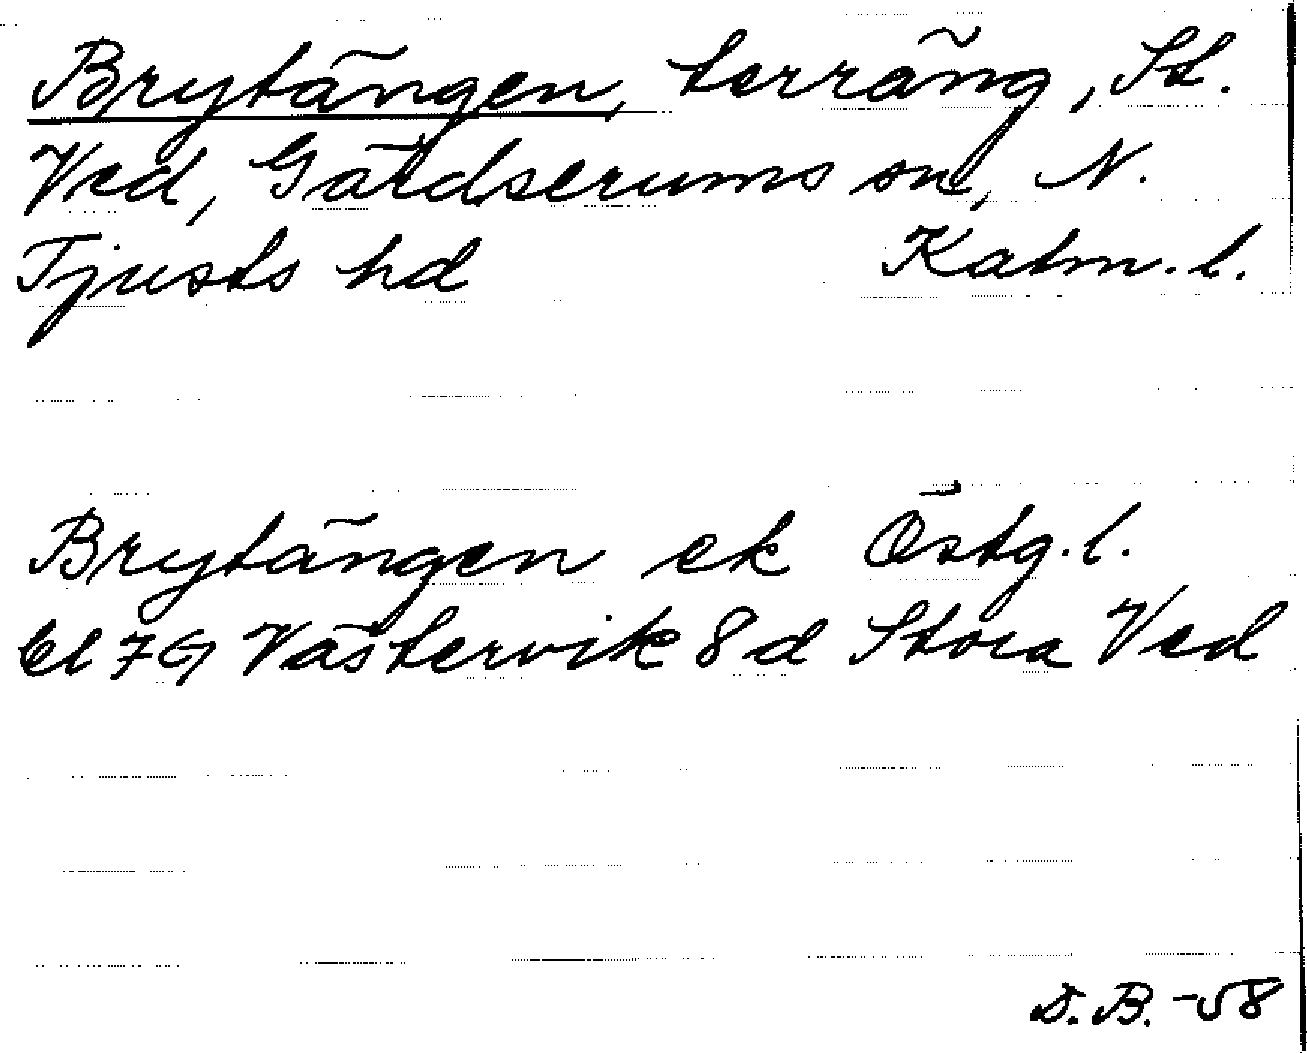 Brytängen, terräng, St.
Ved, Gärdserums sn, N.
Tjusts hd Kalm. l.
Brytängen ek Östg. l.
bl 7G Västervik 8d Stora Ved
D.B. -58